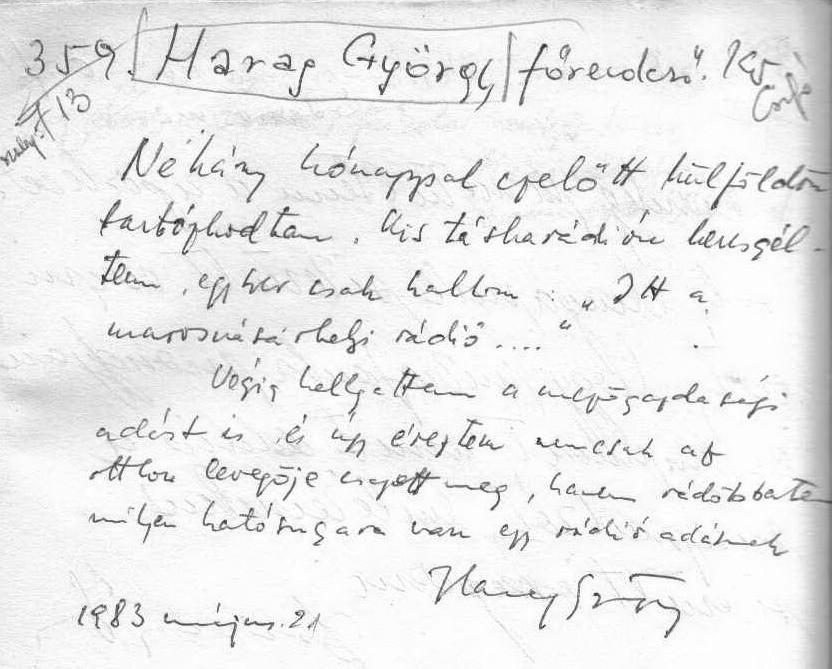 359. Harag György főrendező.
13
Néhány hónappal ezelőtt külföldön
tartózkodtam. Kis táskarádión keresgél-
tem, egyszer csak hallom: „Itt a
marosvásárhelyi rádió...."
Végig hallgattam a mezőgazdasági
adást is, és úgy éreztem nemcsak az
otthon levegője csapott meg, hanem rádöbbentem
milyen hatósugara van egy rádió adásnak
Harag György
1983 május. 21